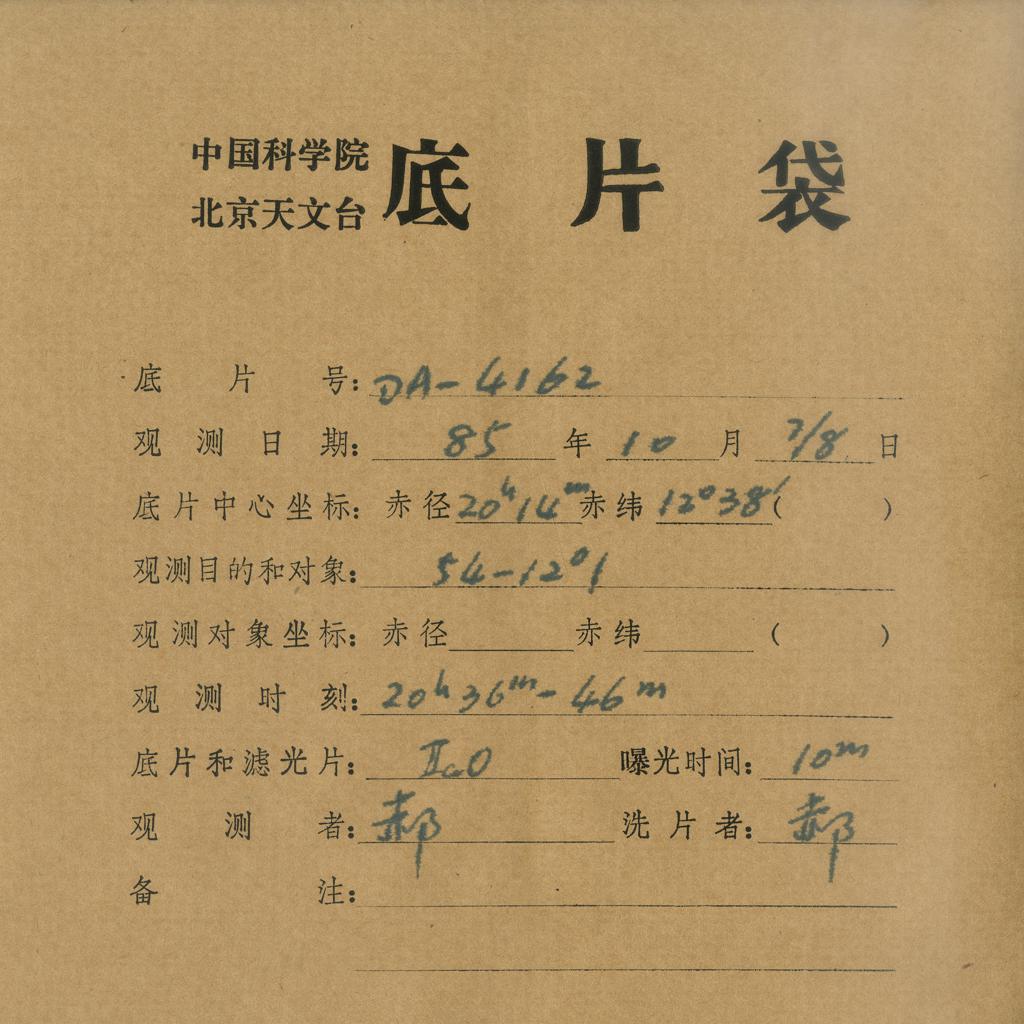 中国科学院
北京天文台
底片袋
底片号：DA-4162
观测日期：85年10月7/8日
底片中心坐标：赤径20ʰ14ᵐ赤纬12°38′（ ）
观测目的和对象：54-12°1
观测对象坐标：赤径 赤纬 （ ）
观测时刻：20ʰ36ᵐ-46ᵐ
底片和滤光片：ⅡaO 曝光时间：10ᵐ
观测者：郝 洗片者：郝
备注：